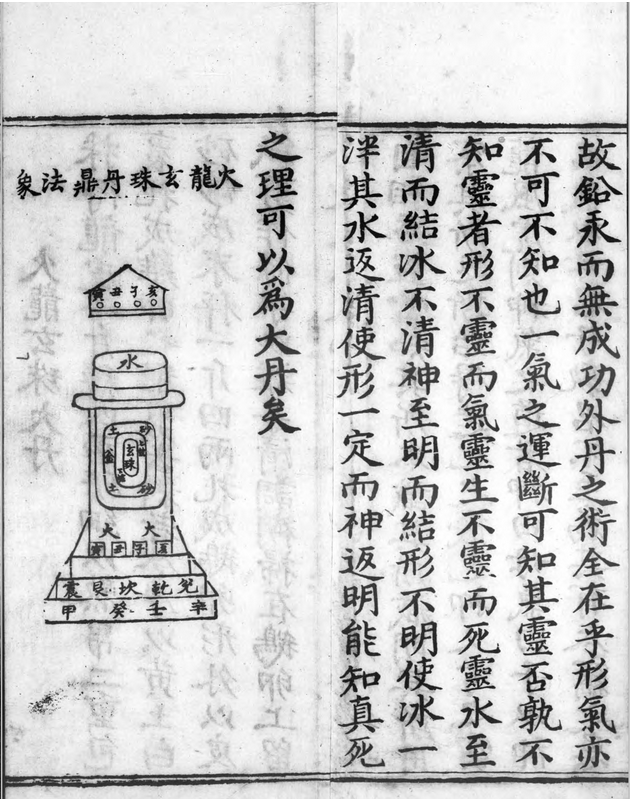 故鉛汞而無成功外丹之術全在乎形氣亦
不可不知也一氣之運斷可知其靈否孰不
知靈者形不靈而氣靈生不靈而死靈水至
清而結冰不清神至明而結形不明使冰一
泮其水返清使形一定而神返明能知真死
之理可以為大丹矣
火龍玄珠丹鼎法象
亥子丑寅
水
砂土
玄珠
砂土
火火
亥子丑寅
兌乾坎艮震
辛壬癸甲